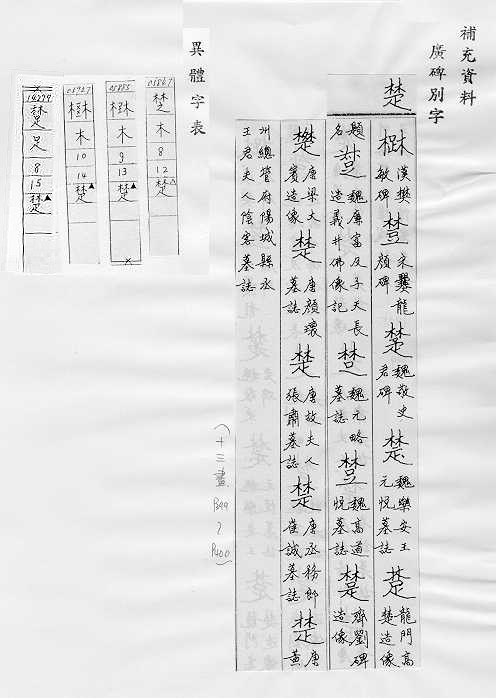 補充資料
廣碑別字
楚
漢樊敏碑
宋爨龍顏碑
魏敬史君碑
魏樂安王元悅墓誌
龍門高楚造像
題名
魏廉富及子天長造義井佛像記
魏元略墓誌
魏高道悅墓誌
齊劉碑造像
唐梁大寶造像
楚
唐顏瓌墓誌
唐故夫人張肅墓誌
唐丞務郎崔誠墓誌
唐黃
州總管府陽城縣丞
王君夫人陰容墓誌
(十三畫
P399
P400)
異體字表
03867
楚
木
8
12
楚
03885
木
9
13
楚
03927
木
10
14
楚
14279
足
8
15
楚